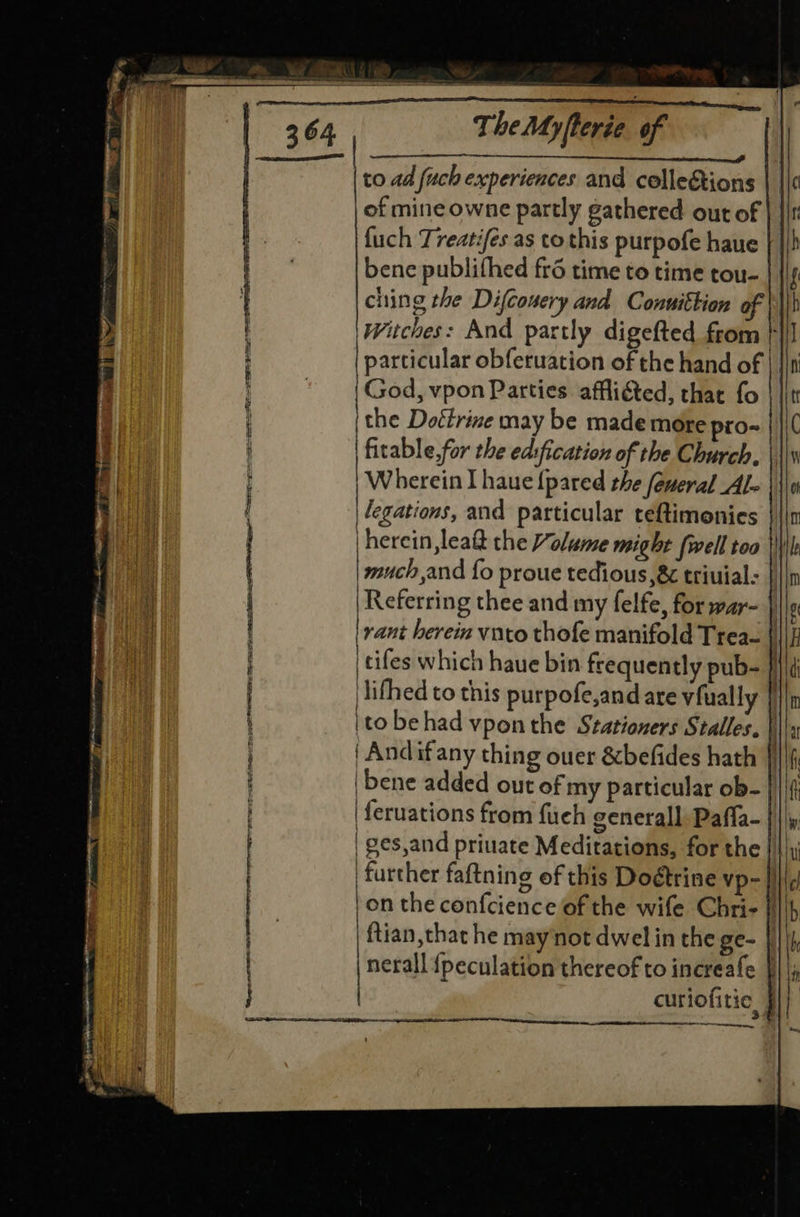 364 The Myſterie of
to ad ſuch experiences and collections
of mine owne partly gathered out of
ſuch Treatiſes as to this purpoſe haue
bene publiſhed frō time to time tou-
ching the Diſcouery and Conuiction of
Witches: And partly digeſted from
particular obſeruation of the hand of
God, vpon Parties afflicted, that ſo
the Doctrine may be made more pro-
fitable, for the edification of the Church.
Wherein I haue ſpared the ſeueral Al-
legations, and particular teſtimonies
herein, leaſt the Volume might ſwell too
much, and ſo proue tedious, & triuial:
Referring thee and my ſelfe, for war-
rant herein vnto thoſe manifold Trea-
tiſes which haue bin frequently pub-
liſhed to this purpoſe, and are vſually
to be had vpon the Stationers Stalles.
And if any thing ouer & beſides hath
bene added out of my particular ob-
ſeruations from ſuch generall Paſſa-
ges, and priuate Meditations, for the
further faſtning of this Doctrine vp-
on the conſcience of the wiſe Chri-
ſtian, that he may not dwel in the ge-
nerall ſpeculation thereof to increaſe
curioſitie,